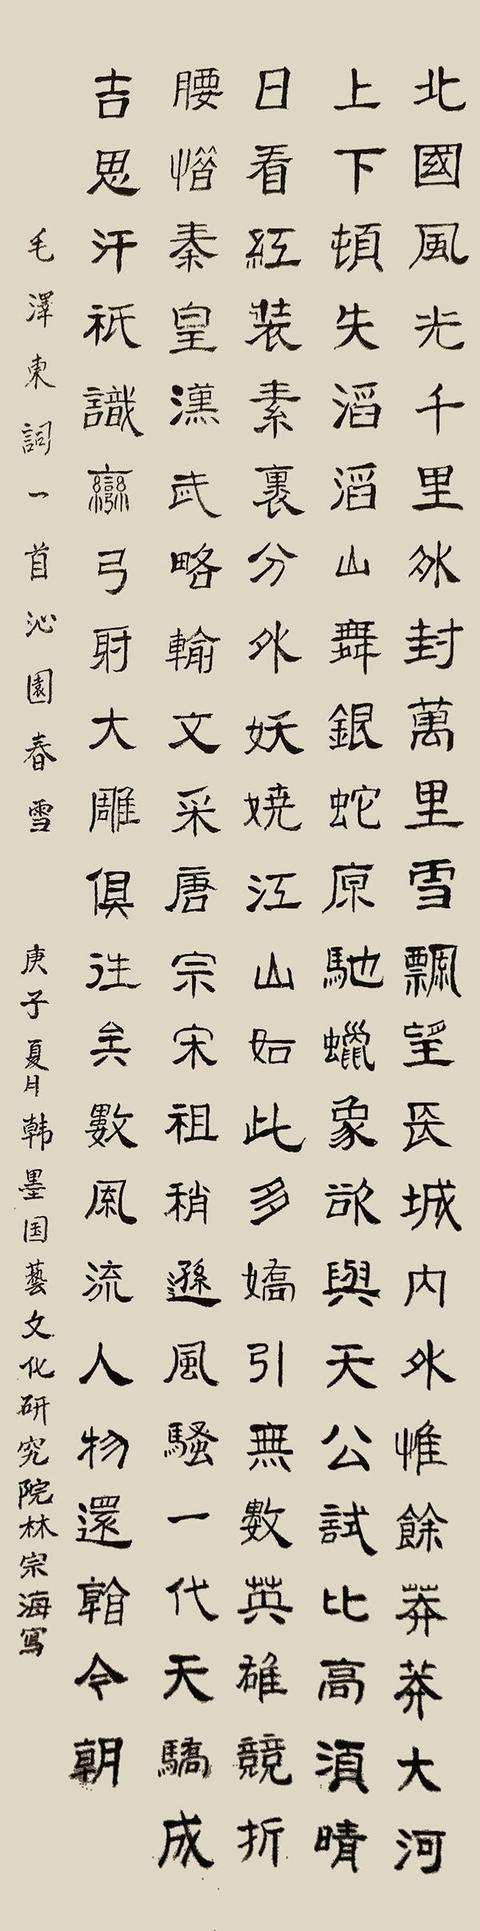 北國風光千里冰封萬里雪飄望長城内外惟餘莽莽大河
上下頓失滔滔山舞銀蛇原馳蠟象欲與天公試比高須晴
日看紅装素裹分外妖嬈江山如此多嬌引無數英雄競折
腰惜秦皇漢武略輸文采唐宗宋祖稍遜風騷一代天驕成
吉思汗祇識彎弓射大雕俱往矣數風流人物還看今朝
毛澤東詞一首沁園春雪 庚子夏月韩墨国藝文化研究院林宗海寫